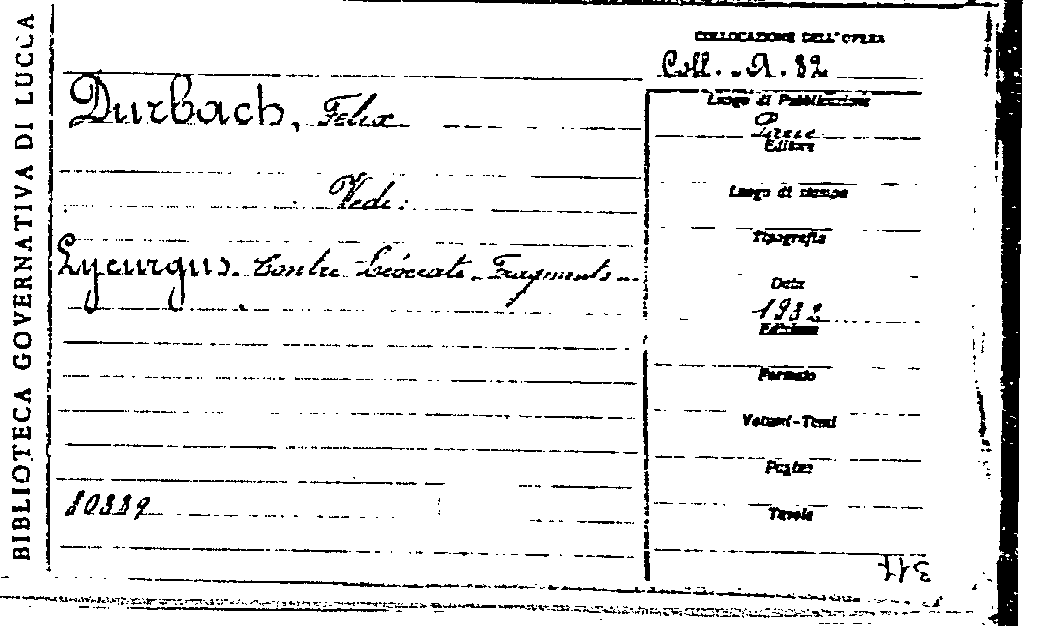 BIBLIOTECA GOVERNATIVA DI LUCCA
COLLOCAZIONE DELL'OPERA
Coll. A. 82
Durbach, Felix
Vedi:
Lycurgus. Contre Léocrate - Fragments -
80339
Luogo di Pubblicazione
Editore
Luogo di stampa
Tipografia
Data
1932
Edizione
Formato
Volumi-Tomi
Pagine
Tavole